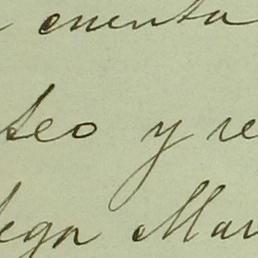 cuenta
teo y re
ega Mar